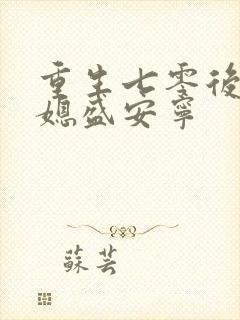 重生七零後
媳盛安寧
蘇芸